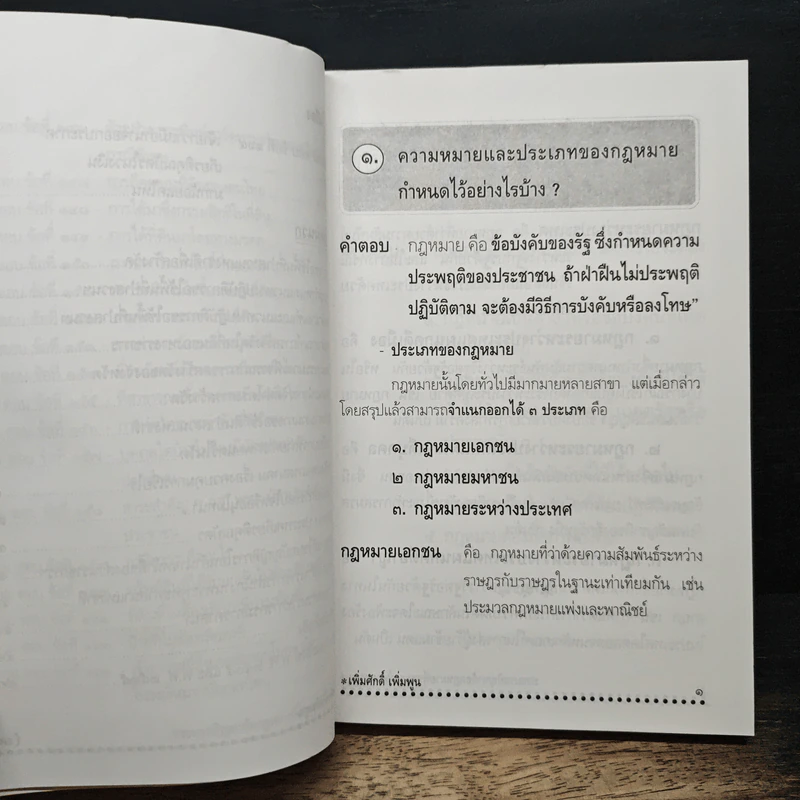 ๑. ความหมายและประเภทของกฎหมาย
กำหนดไว้อย่างไรบ้าง ?
คำตอบ กฎหมาย คือ ข้อบังคับของรัฐ ซึ่งกำหนดความ
ประพฤติของประชาชน ถ้าฝ่าฝืนไม่ประพฤติ
ปฏิบัติตาม จะต้องมีวิธีการบังคับหรือลงโทษ”
- ประเภทของกฎหมาย
กฎหมายนั้นโดยทั่วไปมีมากมายหลายสาขา แต่เมื่อกล่าว
โดยสรุปแล้วสามารถจำแนกออกได้ ๓ ประเภท คือ
๑. กฎหมายเอกชน
๒ กฎหมายมหาชน
๓. กฎหมายระหว่างประเทศ
กฎหมายเอกชน คือ กฎหมายที่ว่าด้วยความสัมพันธ์ระหว่าง
ราษฎรกับราษฎรในฐานะเท่าเทียมกัน เช่น
ประมวลกฎหมายแพ่งและพาณิชย์
*เพิ่มศักดิ์ เพิ่มพูน
๑